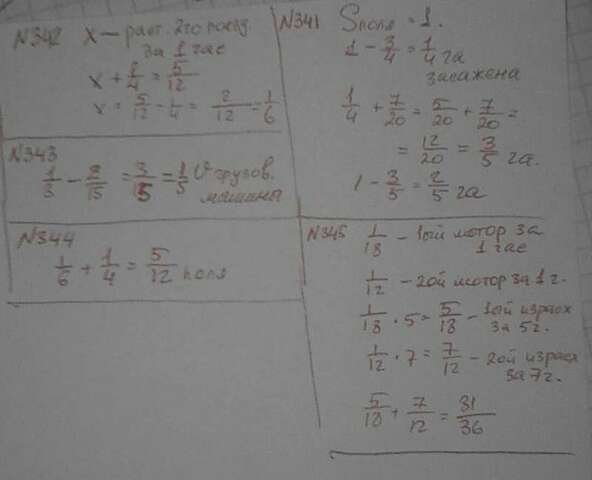 N342 x – раст. 2го поезд
за 1 час
x + 1/4 = 5/12
x = 5/12 - 1/4 = 2/12 = 1/6
N343
1/3 - 2/15 = 3/15 = 1/5 V грузов.
машины
N344
1/6 + 1/4 = 5/12 поля
N341 Sполя = 1.
1 - 3/4 = 1/4 га
засажена
1/4 + 7/20 = 5/20 + 7/20 =
= 12/20 = 3/5 га.
1 - 3/5 = 2/5 га
N345 1/18 - 1ый мотор за
1 час
1/12 - 2ой мотор за 1 ч.
1/18 · 5 = 5/18 - 1ый израсх
за 5ч.
1/12 · 7 = 7/12 - 2ой израсх
за 7 ч.
5/18 + 7/12 = 31/36